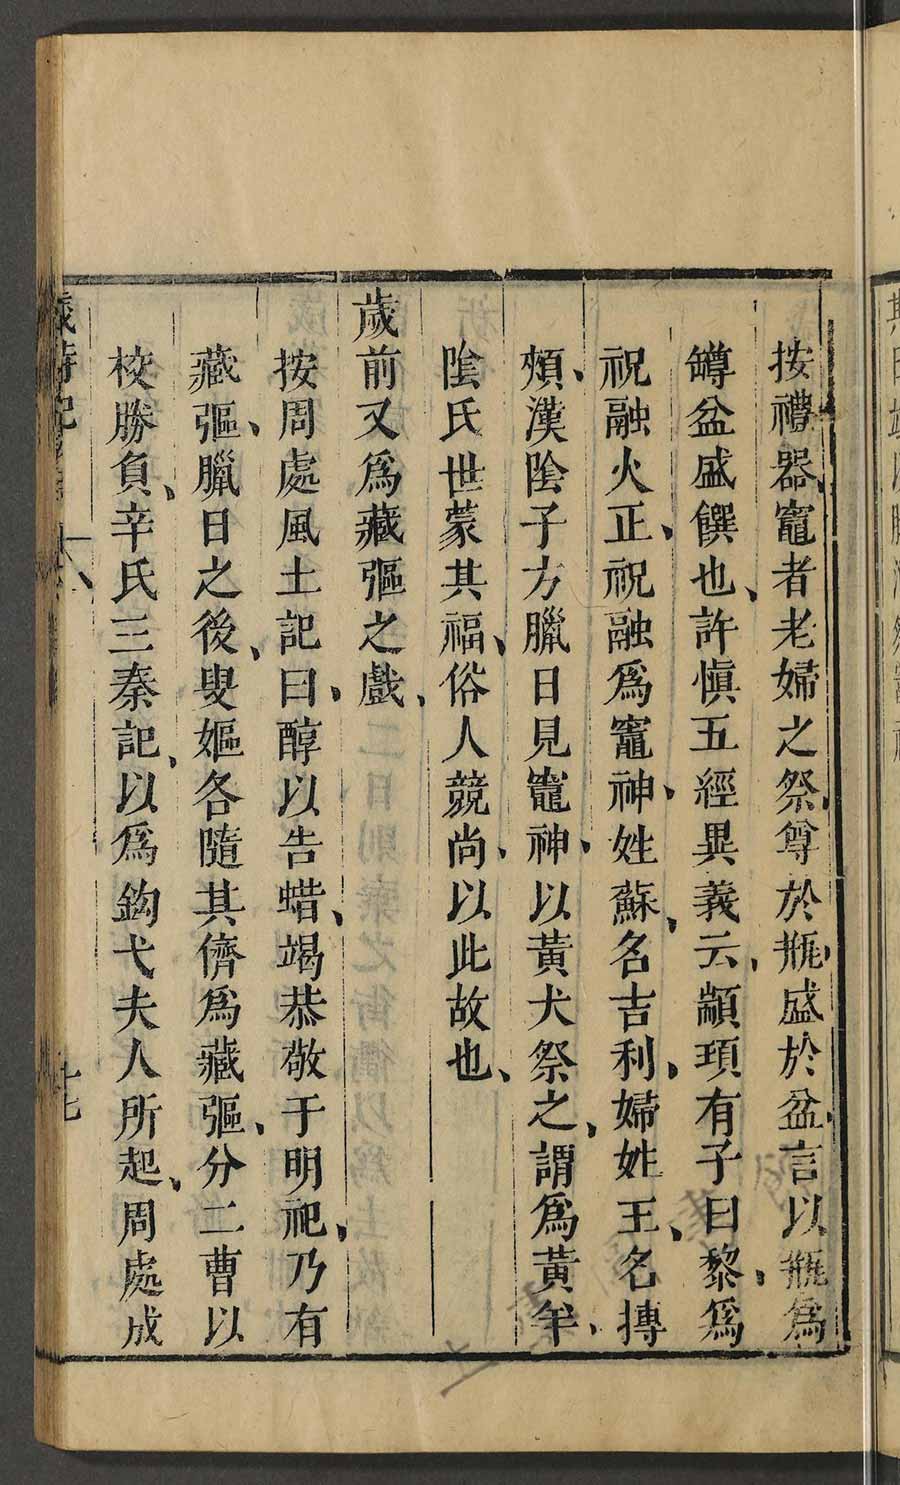 按禮器、竈者老婦之祭、尊於瓶、盛於盆、言以瓶爲
罇盆盛饌也、許愼五經異義云、顓頊有子曰黎、爲
祝融火正、祝融爲竈神、姓蘇、名吉利、婦姓王、名摶
頰、漢陰子方臘日見竈神、以黃犬祭之、謂爲黃羊、
陰氏世蒙其福、俗人競尚、以此故也、
歲前又爲藏彄之戲、
按周處風土記曰、醇以告蜡、竭恭敬于明祀、乃有
藏彄、臘日之後、叟嫗各隨其儕爲藏彄、分二曹以
校勝負、辛氏三秦記、以爲鈎弋夫人所起、周處成
歲時記
十七